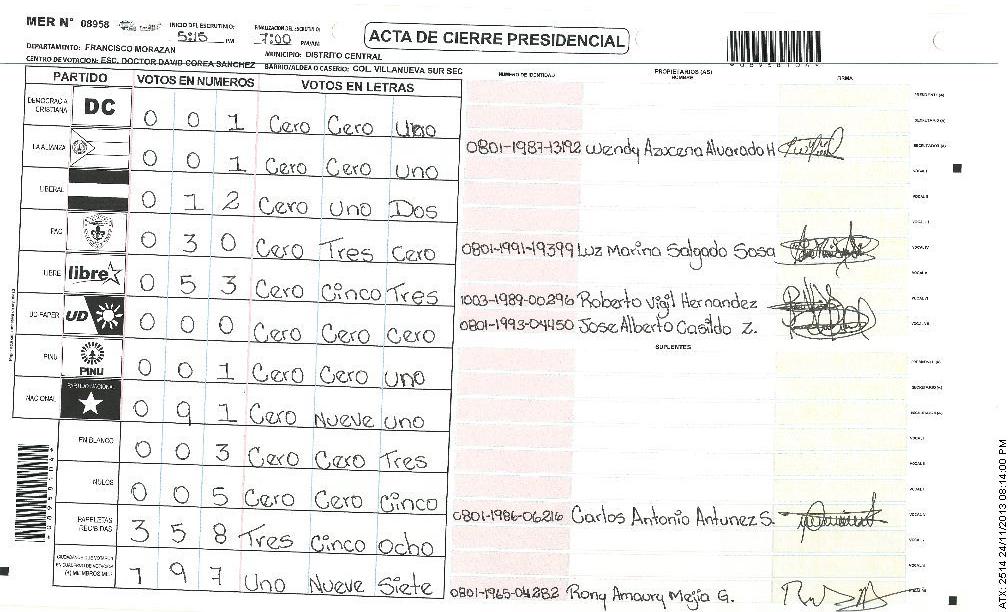 MER N° 08958 INICIO DEL ESCRUTINIO: 5:15 PM FINALIZACION DEL ESCRUTINIO: 7:00 PM/AM ACTA DE CIERRE PRESIDENCIAL
DEPARTAMENTO: FRANCISCO MORAZAN MUNICIPIO: DISTRITO CENTRAL
CENTRO DE VOTACION: ESC. DOCTOR DAVID COREA SANCHEZ BARRIO/ALDEA O CASERIO: COL. VILLANUEVA SUR SEC
PARTIDO VOTOS EN NUMEROS VOTOS EN LETRAS NUMERO DE IDENTIDAD PROPIETARIOS (AS) NOMBRE FIRMA
PRESIDENTE (A)
DEMOCRACIA CRISTIANA DC 0 0 1 Cero Cero Uno
SECRETARIO (A)
LA ALIANZA 0 0 1 Cero Cero Uno
0801-1987-13192 Wendy Azucena Alvarado H ESCRUTADOR (A)
VOCAL I
LIBERAL 0 1 2 Cero Uno Dos
VOCAL II
VOCAL III
PAC 0 3 0 Cero Tres Cero
0801-1991-19399 Luz Marina Salgado Sosa VOCAL IV
VOCAL V
LIBRE libre 0 5 3 Cero Cinco Tres
1003-1989-00296 Roberto Vigil Hernandez VOCAL VI
UD FAPER UD 0 0 0 Cero Cero Cero
0801-1993-04450 Jose Alberto Casildo Z. VOCAL VII
SUPLENTES
PINU PINU 0 0 1 Cero Cero Uno
PRESIDENTE (A)
SECRETARIO (A)
NACIONAL PARTIDO NACIONAL 0 9 1 Cero Nueve Uno
ESCRUTADOR (A)
VOCAL I
EN BLANCO 0 0 3 Cero Cero Tres
VOCAL II
NULOS 0 0 5 Cero Cero Cinco
0801-1986-06216 Carlos Antonio Antunez S.
PAPELETAS RECIBIDAS 3 5 8 Tres Cinco Ocho
CIUDADANOS QUE VOTARON EN CUADERNO DE VOTACION (+) MIEMBROS MER 1 9 7 Uno Nueve Siete
0801-1965-04282 Rony Amaury Mejia G.
ATX 2514 24/11/2013 08:14:00 PM